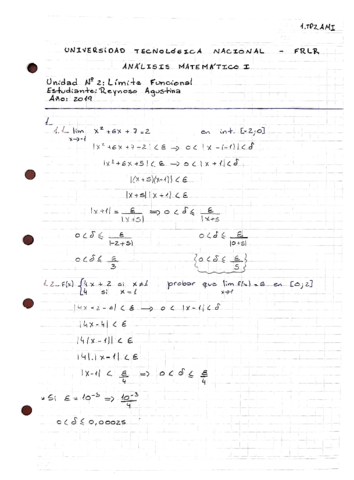 1.TP2.AMI
UNIVERSIDAD TECNOLÓGICA NACIONAL - FRLR
ANÁLISIS MATEMÁTICO I
Unidad Nº 2: Límite Funcional
Estudiante: Reynoso Agustina
Año: 2019
1_
1.1_ lim x→-1 x² + 6x + 7 = 2 en int. [-2;0]
|x² + 6x + 7 - 2| < ε → 0 < |x - (-1)| < δ
|x² + 6x + 5| < ε → 0 < |x + 1| < δ
|(x + 5)(x+1)| < ε
|x + 5| |x + 1| < ε
|x + 1| = ε/|x + 5| ⟹ 0 < δ ≤ ε/|x + 5
0 < δ ≤ ε/|-2 + 5| 0 < δ ≤ ε/|0 + 5|
0 < δ ≤ ε/3 {0 < δ ≤ ε/5}
1.2_ f(x) {4x + 2 si x≠1 probar que lim x→1 f(x) = en [0;2]
{4 si x = 1
|4x + 2 - 6| < ε → 0 < |x - 1| < δ
|4x - 4| < ε
|4(x - 1)| < ε
|4|.|x - 1| < ε
|x - 1| < ε/4 ⟹ 0 < δ ≤ ε/4
Si ε = 10⁻³ ⟹ 10⁻³/4
0 < δ ≤ 0,00025